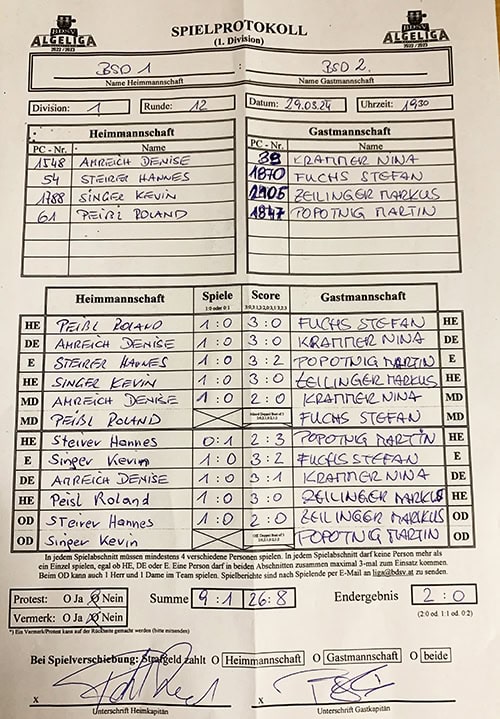 BDSV
ALGELIGA
2022 / 2023
SPIELPROTOKOLL
(1. Division)
BDSV
ALGELIGA
2022 / 2023
BSD 1 : BSD 2.
Name Heimmannschaft Name Gastmannschaft
Division: 1 Runde: 12 Datum: 29.03.24 Uhrzeit: 1930
Heimmannschaft Gastmannschaft
PC - Nr. Name PC - Nr. Name
1548 AMREICH DENISE 39 KRAMMER NINA
54 STEIRER HANNES 1870 FUCHS STEFAN
1788 SINGER KEVIN 2105 ZEILINGER MARKUS
61 PEIßL ROLAND 1847 POPOTNIG MARTIN
Heimmannschaft Spiele Score Gastmannschaft
1:0 oder 0:1 3:0,3:1,3:2,0:3,1:3,2:3
HE PEIßL ROLAND 1 : 0 3 : 0 FUCHS STEFAN HE
DE AMREICH DENISE 1 : 0 3 : 0 KRAMMER NINA DE
E STEIRER HANNES 1 : 0 3 : 2 POPOTNIG MARTIN E
HE SINGER KEVIN 1 : 0 3 : 0 ZEILINGER MARKUS HE
MD AMREICH DENISE 1 : 0 2 : 0 KRAMMER NINA MD
MD PEIßL ROLAND FUCHS STEFAN MD
HE Steirer Hannes 0 : 1 2 : 3 POPOTNIG MARTIN HE
E Singer Kevin 1 : 0 3 : 2 FUCHS STEFAN E
DE AMREICH DENISE 1 : 0 3 : 1 KRAMMER NINA DE
HE Peisl Roland 1 : 0 3 : 0 ZEILINGER MARKUS HE
OD Steirer Hannes 1 : 0 2 : 0 ZEILINGER MARKUS OD
OD Singer Kevin POPOTNIG MARTIN OD
In jedem Spielabschnitt müssen mindestens 4 verschiedene Personen spielen. In jedem Spielabschnitt darf keine Person mehr als
ein Einzel spielen, egal ob HE, DE oder E. Eine Person darf in beiden Abschnitten zusammen maximal 3-mal zum Einsatz kommen.
Beim OD kann auch 1 Herr und 1 Dame im Team spielen. Spielberichte sind nach Spielende per E-Mail an liga@bdsv.at zu senden.
Protest: O Ja O Nein Summe 9 : 1 26 : 8 Endergebnis 2 : 0
Vermerk: O Ja O Nein (2:0 od. 1:1 od. 0:2)
*) Ein Vermerk/Protest kann auf der Rückseite gemacht werden (bitte ankreuzen)
Bei Spielverschiebung: Strafgeld zahlt O Heimmannschaft O Gastmannschaft O beide
x x
Unterschrift Heimkapitän Unterschrift Gastkapitän